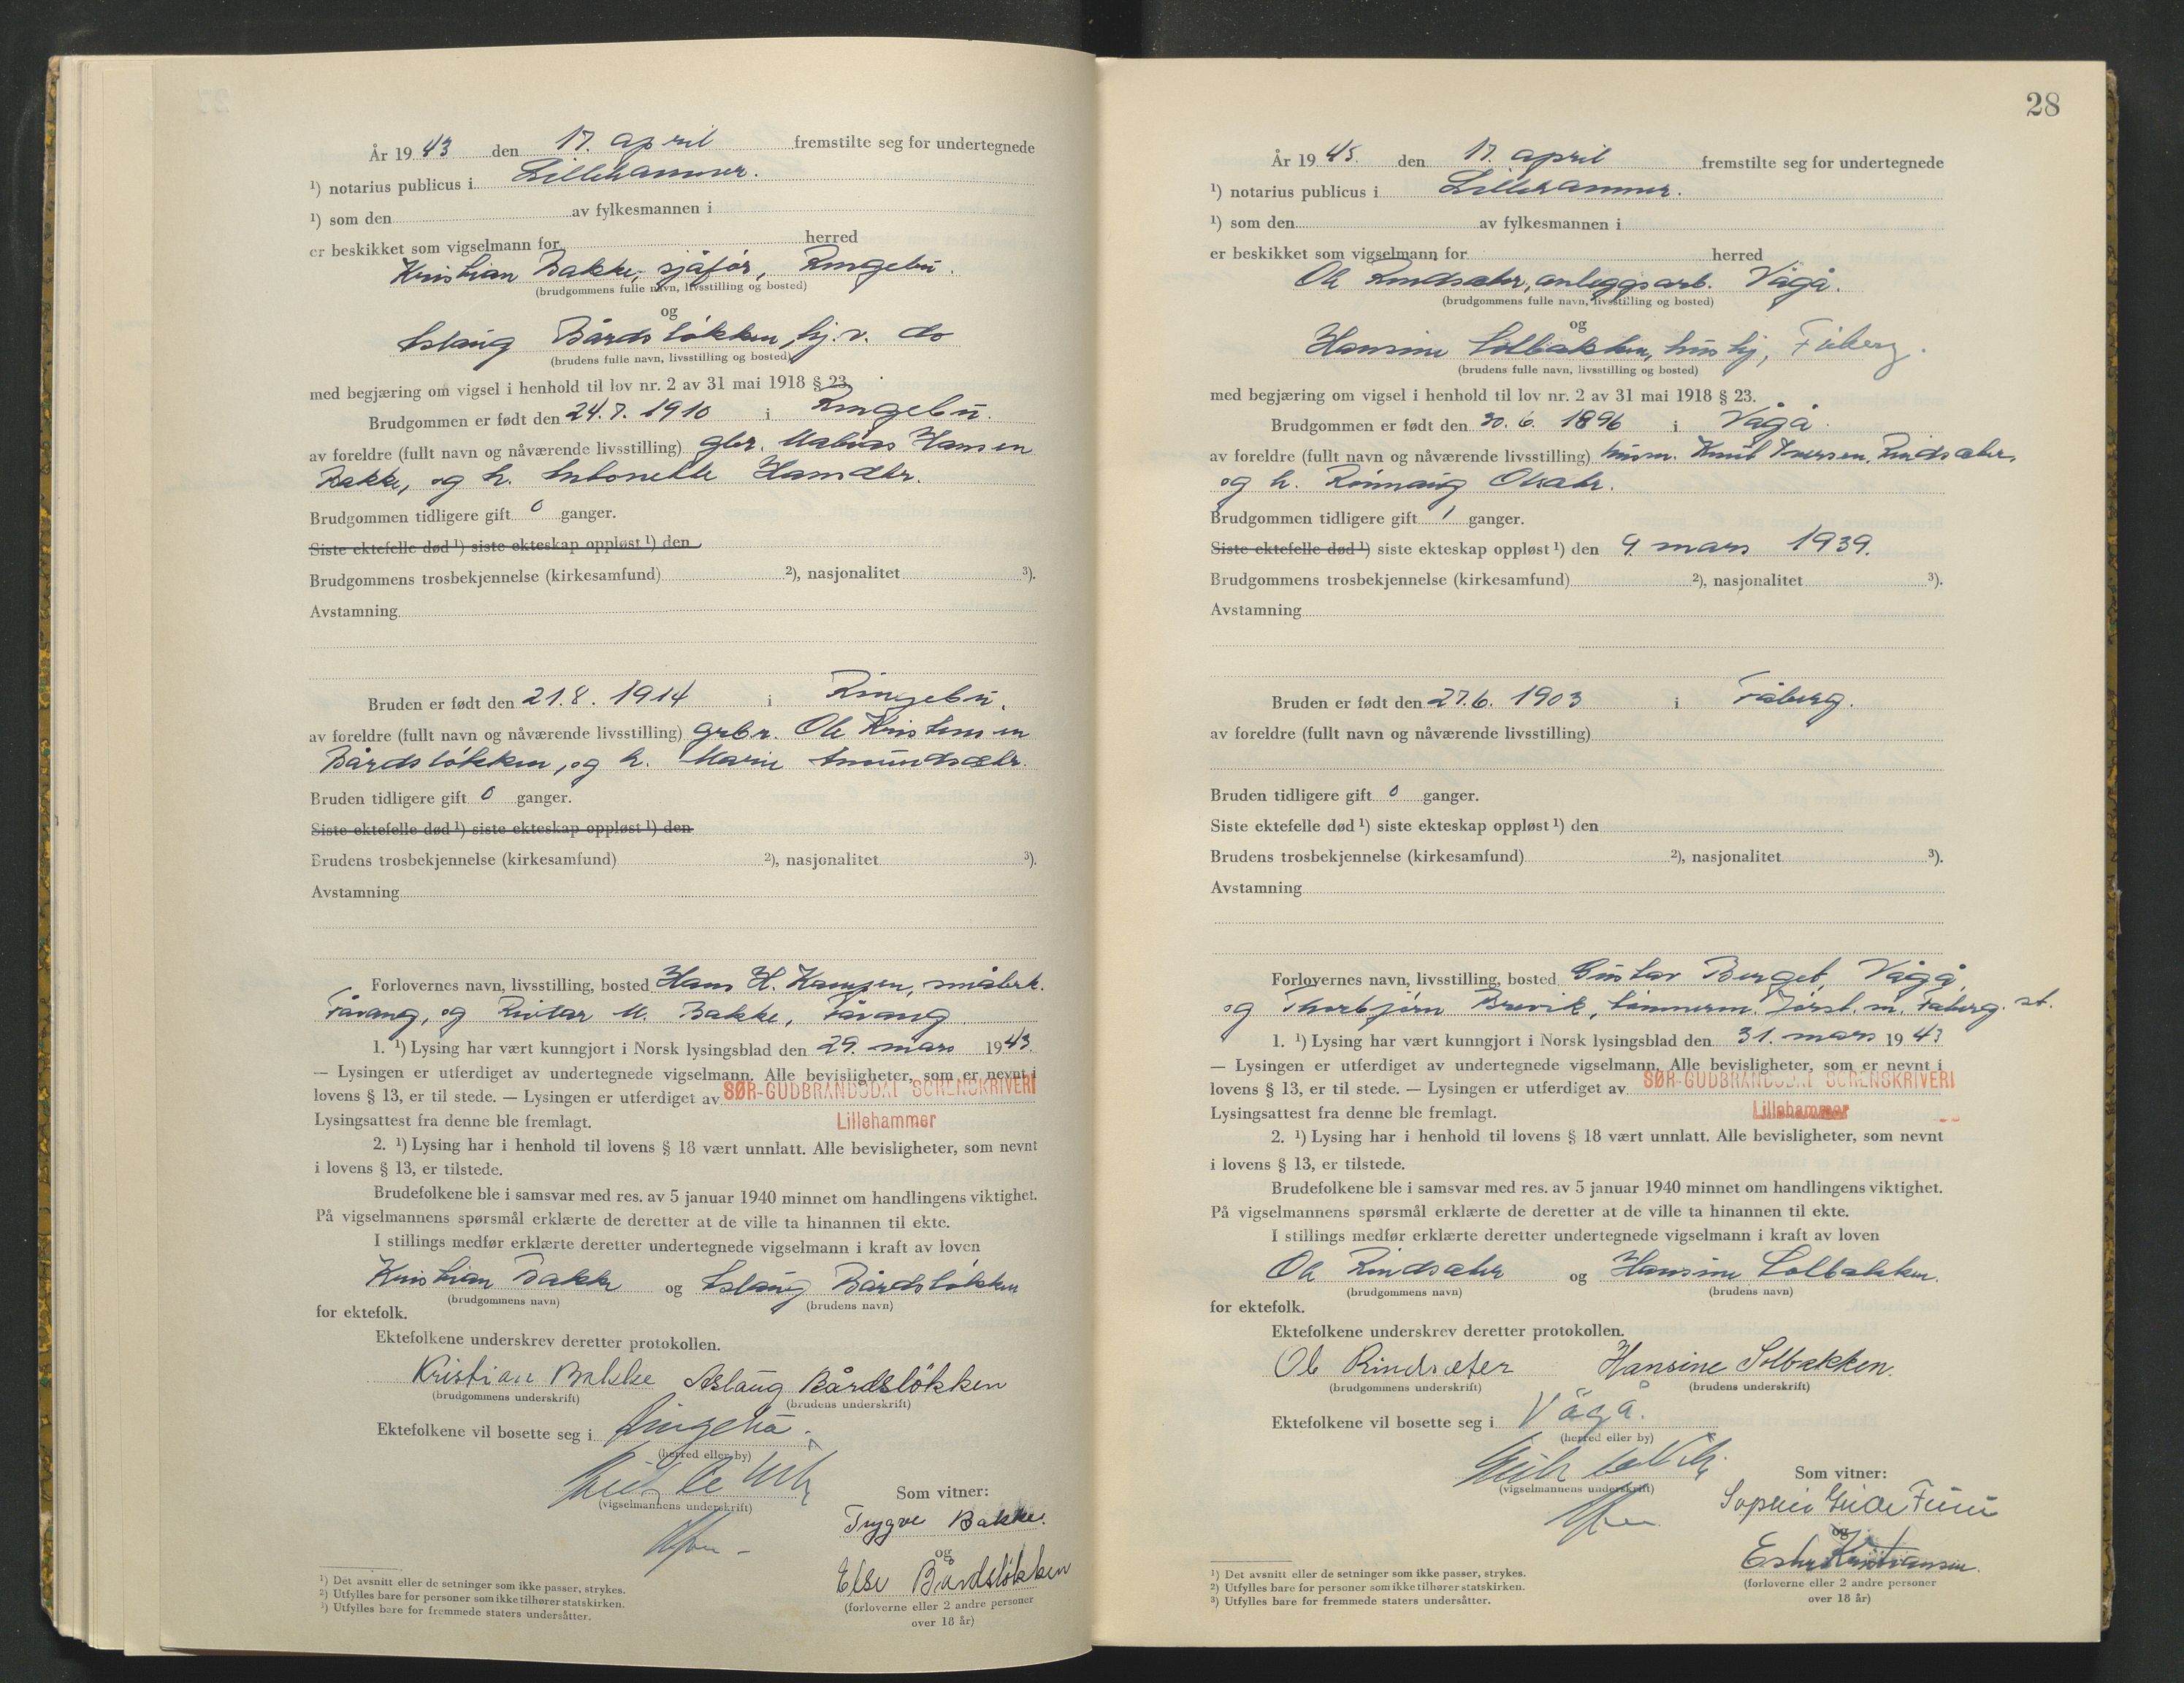 År 19 43 den 17. april fremstilte seg for undertegnede
¹) notarius publicus i Lillehammer.
¹) som den av fylkesmannen i
er beskikket som vigselmann for herred
Kristian Bakke, sjåfør, Ringebu.
(brudgommens fulle navn, livsstilling og bosted)
og
Aslaug Bårdsløkken, hj.v. do
(brudens fulle navn, livsstilling og bosted)
med begjæring om vigsel i henhold til lov nr. 2 av 31 mai 1918 § 23.
Brudgommen er født den 24.7. 1910 i Ringebu.
av foreldre (fullt navn og nåværende livsstilling) gbr. Hansen
Bakke, og h. Antonette Hansdtr.
Brudgommen tidligere gift 0 ganger.
Siste ektefelle død ¹) siste ekteskap oppløst ¹) den
Brudgommens trosbekjennelse (kirkesamfund) ²), nasjonalitet ³).
Avstamning
Bruden er født den 21.8. 1914 i Ringebu.
av foreldre (fullt navn og nåværende livsstilling) grbr. Ole Kristensen
Bårdsløkken, og h. Marie Amundsdtr.
Bruden tidligere gift 0 ganger.
Siste ektefelle død ¹) siste ekteskap oppløst ¹) den
Brudens trosbekjennelse (kirkesamfund) ²), nasjonalitet ³).
Avstamning
Forlovernes navn, livsstilling, bosted Hans H. småbrk.
Fåvang, og M. Bakke, Fåvang
1. ¹) Lysing har vært kunngjort i Norsk lysingsblad den 29. mars 1943.
— Lysingen er utferdiget av undertegnede vigselmann. Alle bevisligheter, som er nevnt i
lovens § 13, er til stede. — Lysingen er utferdiget av SØR-GUDBRANDSDAL SORENSKRIVERI
Lysingsattest fra denne ble fremlagt. Lillehammer
2. ¹) Lysing har i henhold til lovens § 18 vært unnlatt. Alle bevisligheter, som nevnt
i lovens § 13, er tilstede.
Brudefolkene ble i samsvar med res. av 5 januar 1940 minnet om handlingens viktighet.
På vigselmannens spørsmål erklærte de deretter at de ville ta hinannen til ekte.
I stillings medfør erklærte deretter undertegnede vigselmann i kraft av loven
Kristian Bakke og Aslaug Bårdsløkken
(brudgommens navn) (brudens navn)
for ektefolk.
Ektefolkene underskrev deretter protokollen.
Kristian Bakke Aslaug Bårdsløkken
(brudgommens underskrift) (brudens underskrift)
Ektefolkene vil bosette seg i Ringebu.
(herred eller by)
(vigselmannens underskrift)
Som vitner:
Trygve Bakke.
og
Else Bårdsløkken
(forloverne eller 2 andre personer
over 18 år)
¹) Det avsnitt eller de setninger som ikke passer, strykes.
²) Utfylles bare for personer som ikke tilhører statskirken.
³) Utfylles bare for fremmede staters undersåtter.
28
År 19 43. den 17. april fremstilte seg for undertegnede
¹) notarius publicus i Lillehammer.
¹) som den av fylkesmannen i
er beskikket som vigselmann for herred
Ole Rindsæter, anleggsarb. Vågå.
(brudgommens fulle navn, livsstilling og bosted)
og
Hansine Solbakken, hushj, Fåberg.
(brudens fulle navn, livsstilling og bosted)
med begjæring om vigsel i henhold til lov nr. 2 av 31 mai 1918 § 23.
Brudgommen er født den 30. 6. 1896 i Vågå.
av foreldre (fullt navn og nåværende livsstilling) husm. Knut Iversen Rindsæter,
og h. Rønnaug Olsdtr.
Brudgommen tidligere gift 1 ganger.
Siste ektefelle død ¹) siste ekteskap oppløst ¹) den 9. mars 1939.
Brudgommens trosbekjennelse (kirkesamfund) ²), nasjonalitet ³).
Avstamning
Bruden er født den 27.6. 1903 i Fåberg.
av foreldre (fullt navn og nåværende livsstilling)
Bruden tidligere gift 0 ganger.
Siste ektefelle død ¹) siste ekteskap oppløst ¹) den
Brudens trosbekjennelse (kirkesamfund) ²), nasjonalitet ³).
Avstamning
Forlovernes navn, livsstilling, bosted Gustav Berget, Vågå,
og Thorbjørn Brevik, tømmerm. Jørst.m. Fåberg. st.
1. ¹) Lysing har vært kunngjort i Norsk lysingsblad den 31. mars 1943
— Lysingen er utferdiget av undertegnede vigselmann. Alle bevisligheter, som er nevnt i
lovens § 13, er til stede. — Lysingen er utferdiget av SØR-GUDBRANDSDAL SORENSKRIVERI
Lysingsattest fra denne ble fremlagt. Lillehammer
2. ¹) Lysing har i henhold til lovens § 18 vært unnlatt. Alle bevisligheter, som nevnt
i lovens § 13, er tilstede.
Brudefolkene ble i samsvar med res. av 5 januar 1940 minnet om handlingens viktighet.
På vigselmannens spørsmål erklærte de deretter at de ville ta hinannen til ekte.
I stillings medfør erklærte deretter undertegnede vigselmann i kraft av loven
Ole Rindsæter og Hansine Solbakken.
(brudgommens navn) (brudens navn)
for ektefolk.
Ektefolkene underskrev deretter protokollen.
Ole Rindsæter Hansine Solbakken.
(brudgommens underskrift) (brudens underskrift)
Ektefolkene vil bosette seg i Vågå.
(herred eller by)
(vigselmannens underskrift)
Som vitner:
og
Kristiansen.
(forloverne eller 2 andre personer
over 18 år)
¹) Det avsnitt eller de setninger som ikke passer, strykes.
²) Utfylles bare for personer som ikke tilhører statskirken.
³) Utfylles bare for fremmede staters undersåtter.